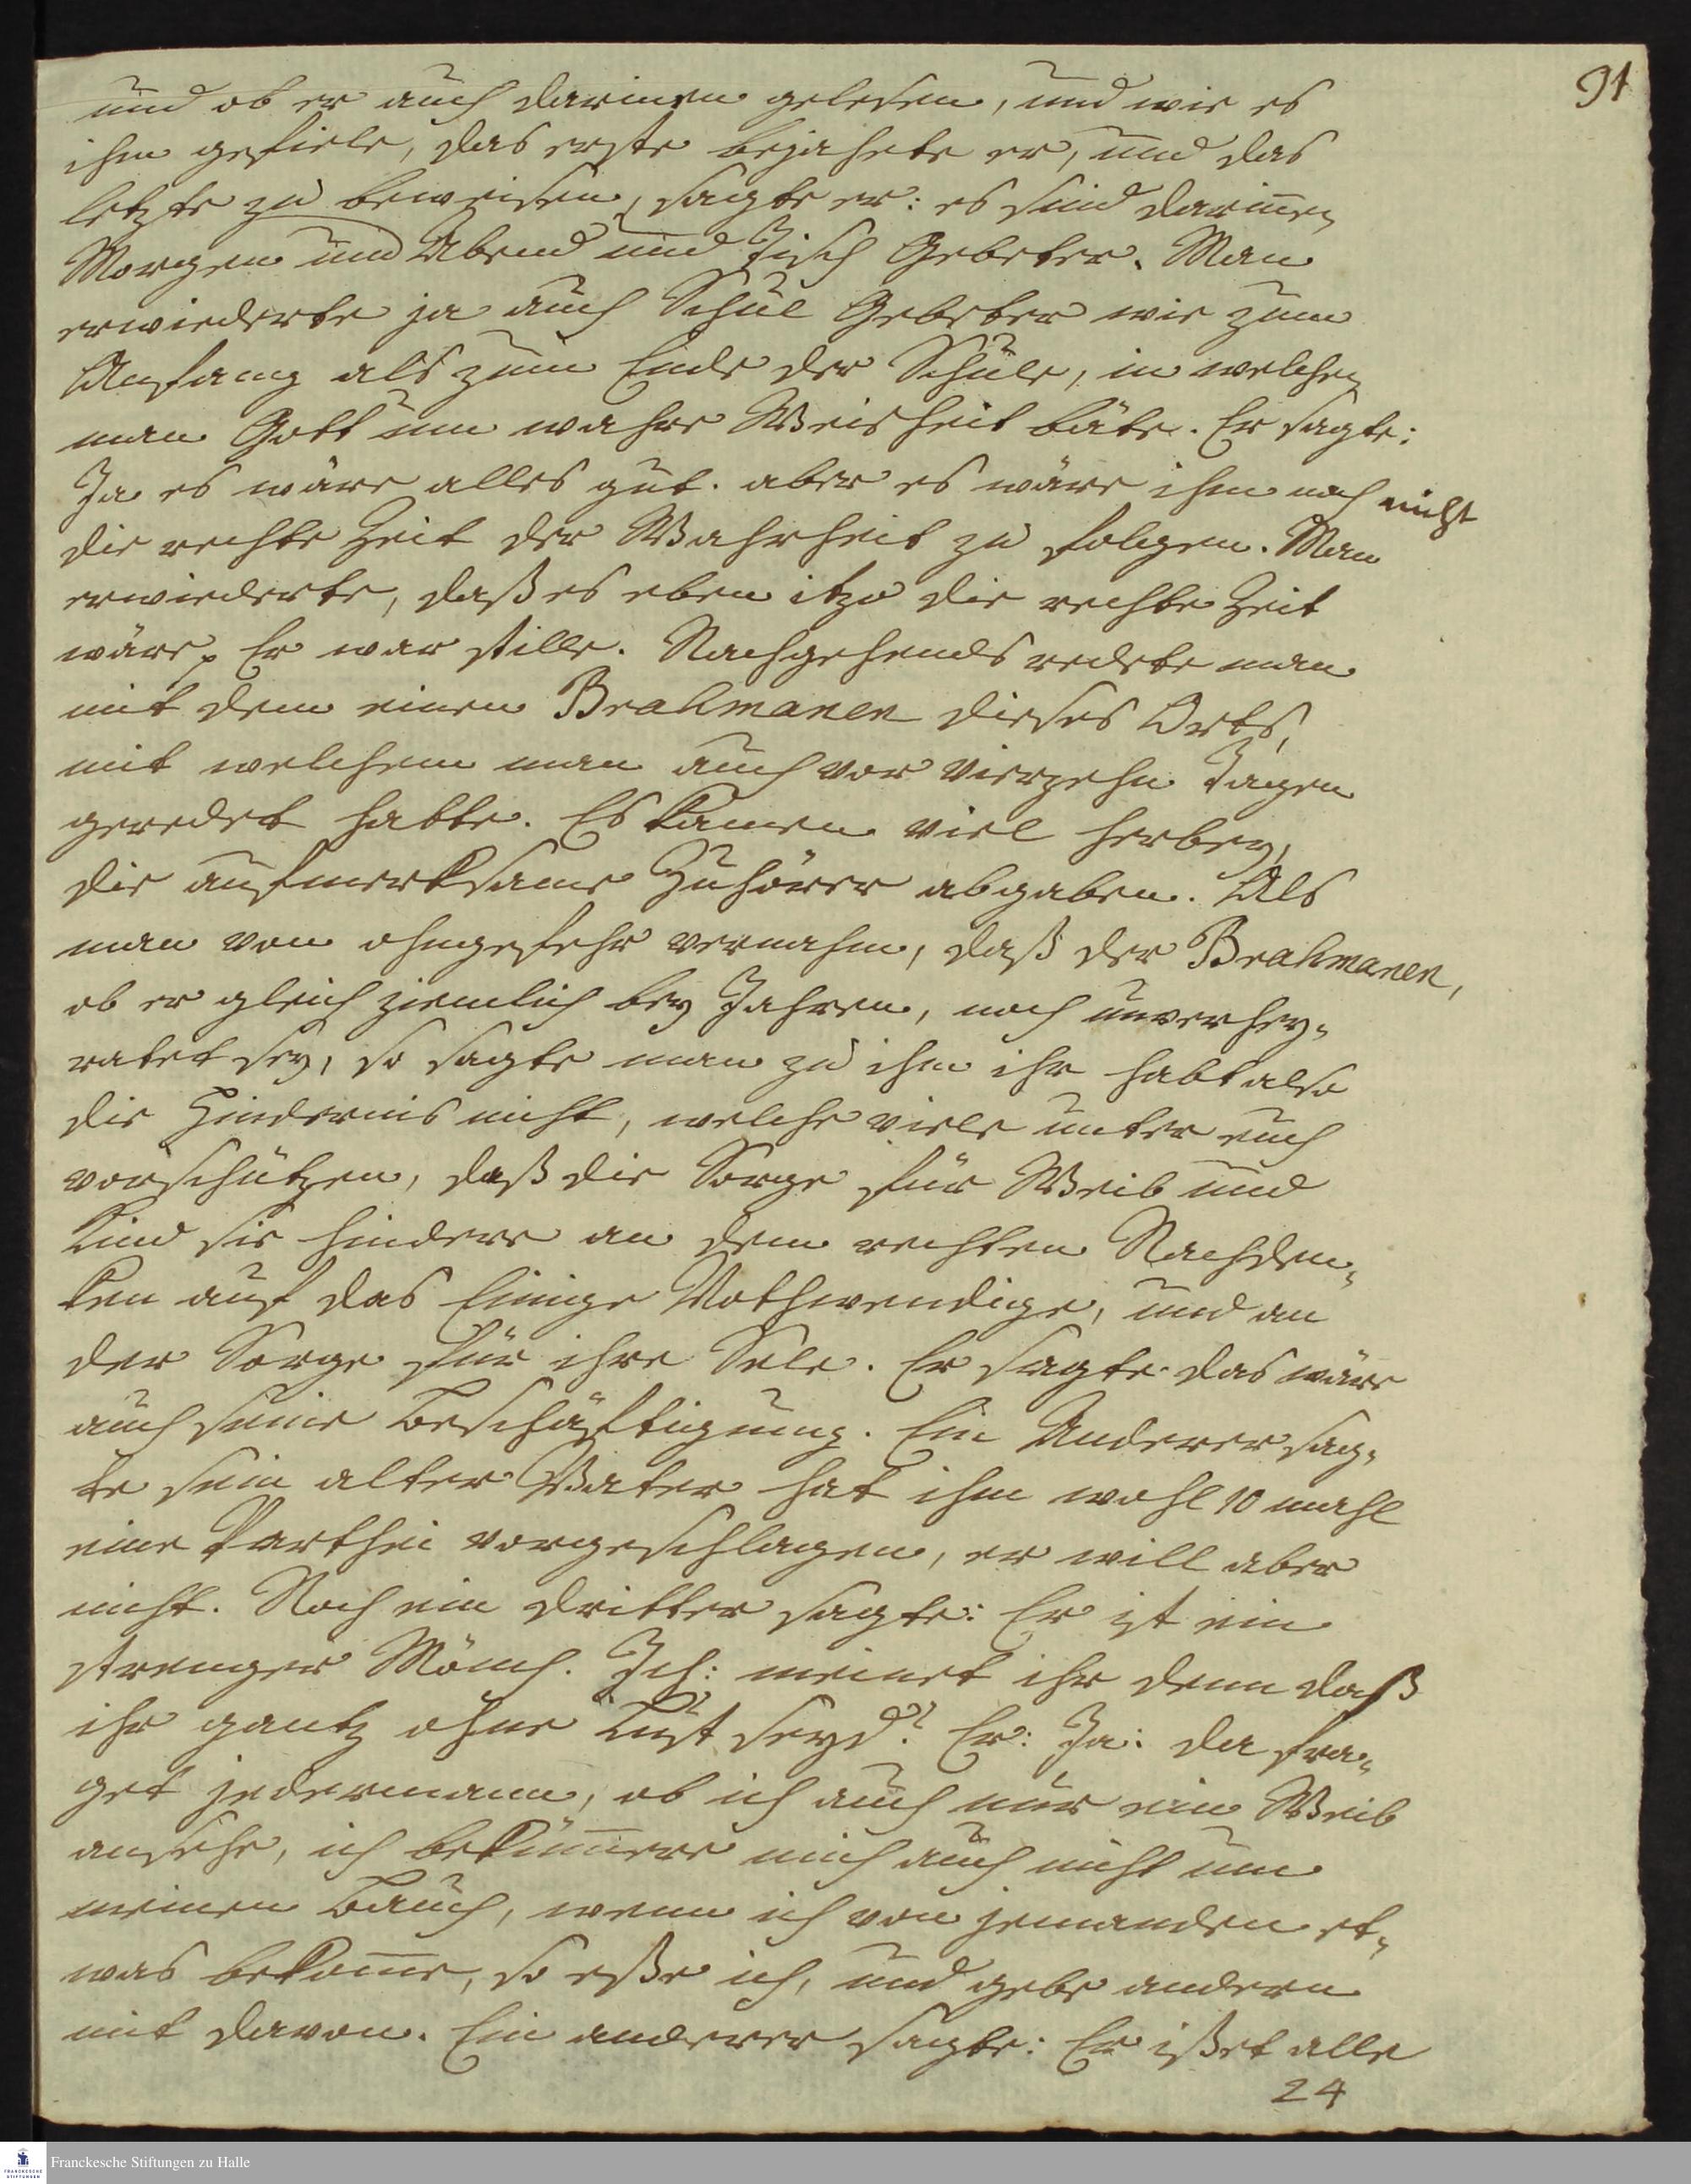 91
und ob er auch darinnen gelesen, und wie es
ihm gefiele, das erste bejahete er, und das
letzte zu beweisen, sagte er: es sind darinnen
Morgen und Abend und Tisch Gebeter. Man
erwiederte ja auch Schul Gebeter wie zum
Anfang als zum Ende der Schule, in welchen
man Gott um wahre Weisheit bäte. Er sagte:
Ja es wäre alles gut. aber es wäre ihm noch nicht
die rechte Zeit der Wahrheit zu folgen. Man
erwiederte, daß es eben itzo die rechte Zeit
wäre. Er war stille. Nachgehends redete man
mit dem einen Brahmanen dieses Orts,
mit welchem man auch vor vierzehn Tagen
geredet hatte. Es kamen viel herbey,
die aufmerksame Zuhörer abgaben. Als
man von ohngefehr vernahm, daß der Brahmanen,
ob er gleich ziemlich bey Jahren, noch unverhey-
ratet sey, so sagte man zu ihm ihr habt also
die Hindernis nicht, welche viele unter euch
vorschützen, daß die Sorge für Weib und
Kind sie hindere an dem rechten Nachden-
ken auf das Einige Nothwendige, und an
der Sorge für ihre Sele. Er sagte das wäre
auch seine Beschäftigung. Ein Anderer sag-
te sein alter Vater hat ihm wohl 10 mahl
eine Parthei vorgeschlagen, er will aber
nicht. Noch ein dritter sagte: Er ist ein
strenger Mönch. Ich: meinet ihr denn daß
ihr gantz ohne Lust seyd? Er: Ja: da fra-
get jedermann, ob ich auch nur ein Weib
ansehe, ich bekümmere mich auch nicht um
meinen Bauch, wenn ich von jemanden et-
was bekomme, so eße ich, und gebe andern
mit davon. Ein anderer sagte: Er ißet alle
24
Franckesche Stiftungen zu Halle
FRANCKESCHE
STIFTUNGEN